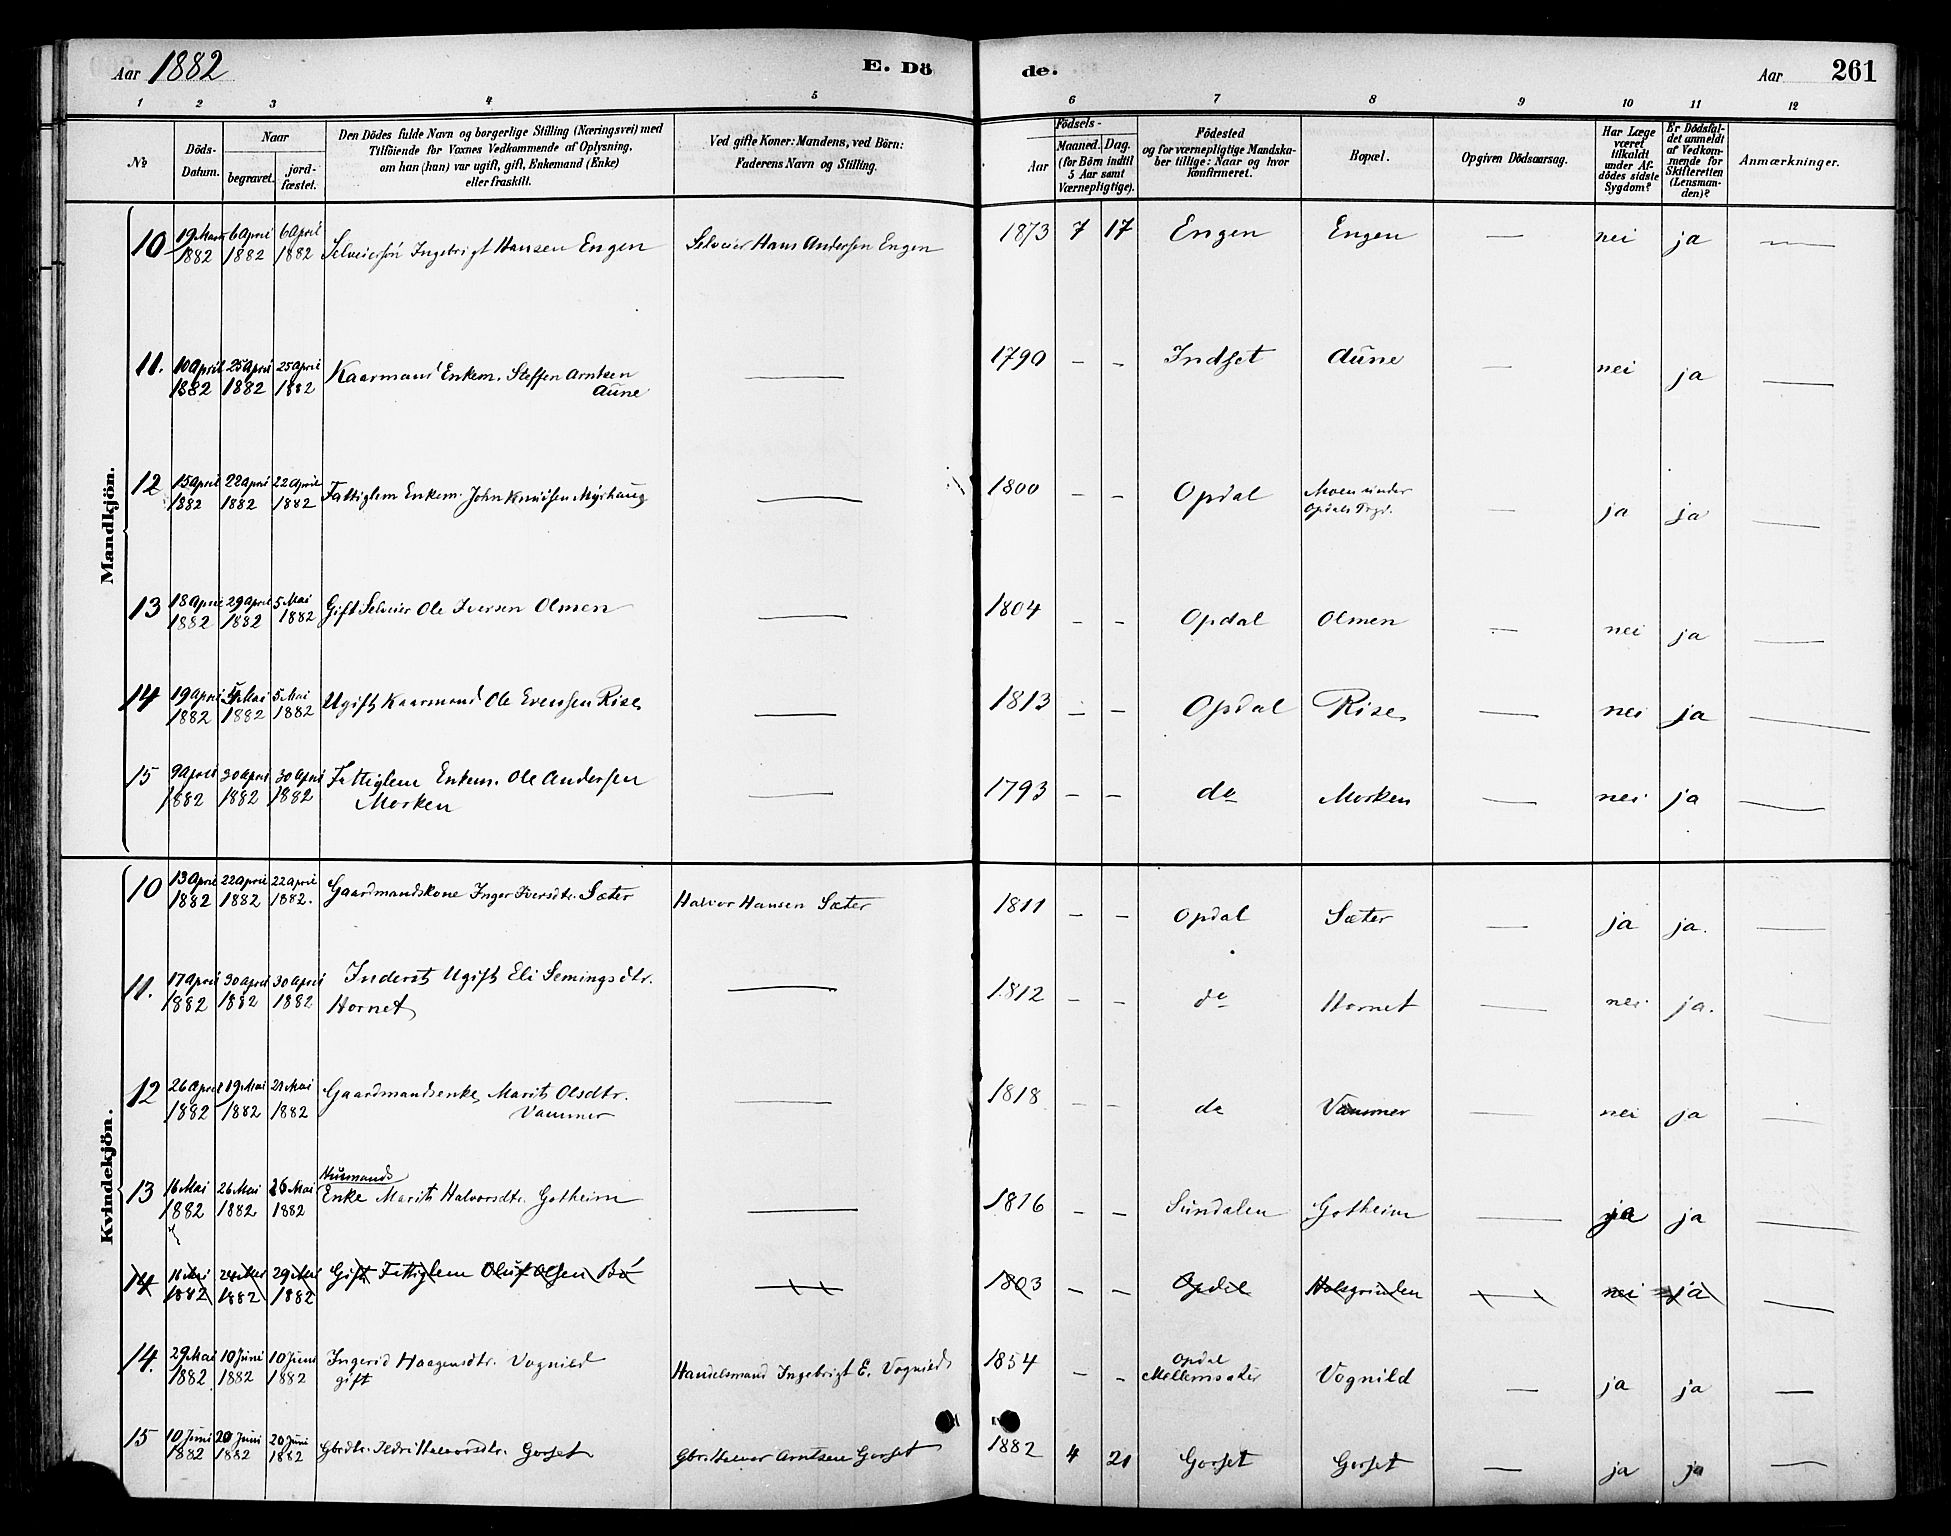 Aar 1882 E. Dö
de. Aar 261
1 2 3 4 5 6 7 8 9 10 11 12
No
Döds-
Datum.
Naar
begravet.
jord-
fæstet.
Den Dödes fulde Navn og borgerlige Stilling (Næringsvei) med
Tilföiende for Voxnes Vedkommende af Oplysning,
om han (hun) var ugift, gift, Enkemand (Enke)
eller fraskilt.
Ved gifte Koner: Mandens, ved Börn:
Faderens Navn og Stilling.
Födsels-
Aar
Maaned. Dag.
(for Börn indtil
5 Aar samt
Værnepligtige).
Födested
og for værnepligtige Mandska-
ber tillige: Naar og hvor
konfirmeret.
Bopæl.
Opgiven Dödsaarsag.
Har Læge
været
tilkaldt
under Af-
dödes sidste
Sygdom?
Er Dödsfal-
det anmeldt
af Vedkom-
mende for
Skifteretten
(Lensman-
den)?
Anmærkninger.
Mandkjön.
10 19 Mars 1882 6 April 1882 6 April 1882 Selveiersön Ingebrigt Hansen Engen Selveier Hans Andersen Engen 1873 7 17 Engen Engen — nei ja —
11. 10 April 1882 25 April 1882 25 April 1882 Kaarmand Enkem. Steffen Arntsen
Aune — 1790 - - Indset Aune — nei ja —
12 15 April 1882 22 April 1882 22 April 1882 Fattiglem Enkem. John Knudsen Myrhaug — 1800 - - Opdal Moen under
Opdals Prgd. — ja ja —
13 18 April 1882 29 April 1882 5 Mai 1882 Gift Selveier Ole Iversen Olmen — 1804 - - Opdal Olmen — nei ja —
14 19 April 1882 5 Mai 1882 5 Mai 1882 Ugift Kaarmand Ole Evensen Rise — 1813 - - Opdal Rise — nei ja —
15 9 April 1882 30 April 1882 30 April 1882 Fattiglem Enkem. Ole Andersen
Morken — 1793 - - do Morken — nei ja —
Kvindekjön.
10 13 April 1882 22 April 1882 22 April 1882. Gaardmandskone Inger Iversdtr. Sæter Halvor Hansen Sæter 1811 - - Opdal Sæter — ja ja. —
11. 17 April 1882 30 April 1882 30 April 1882 Inderst Ugift Eli Semingsdtr.
Hornet — 1812 - - do Hornet — nei ja. —
12 26 April 1882 19 Mai 1882 21 Mai 1882 Gaardmandsenke Marit Olsdtr.
Vammer — 1818 - - do Vammer — nei ja —
13 16 Mai 1882 26 Mai 1882 26 Mai 1882 Husmands
Enke Marit Halvorsdtr. Gotheim — 1816 - - Sundalen Gotheim — ja ja —
14 1882 1882 29 Mai 1882 Gift Fattiglem Oluf Olsen Bö — 1803 - - Opdal Holsgrinden — nei ja —
14. 29 Mai 1882 10 Juni 1882 10 Juni 1882 Ingerid Haagensdtr. Vognild
gift Handelsmand Ingebrigt E. Vognild 1854 - - Opdal
Mellemsæter Vognild — ja ja —
15 10 Juni 1882 20 Juni 1882 20 Juni 1882 Gbrdtr. Ildri Halvorsdtr. Gorset Gbr. Halvor Arntsen Gorset 1882 4 21 Gorset Gorset — ja ja —